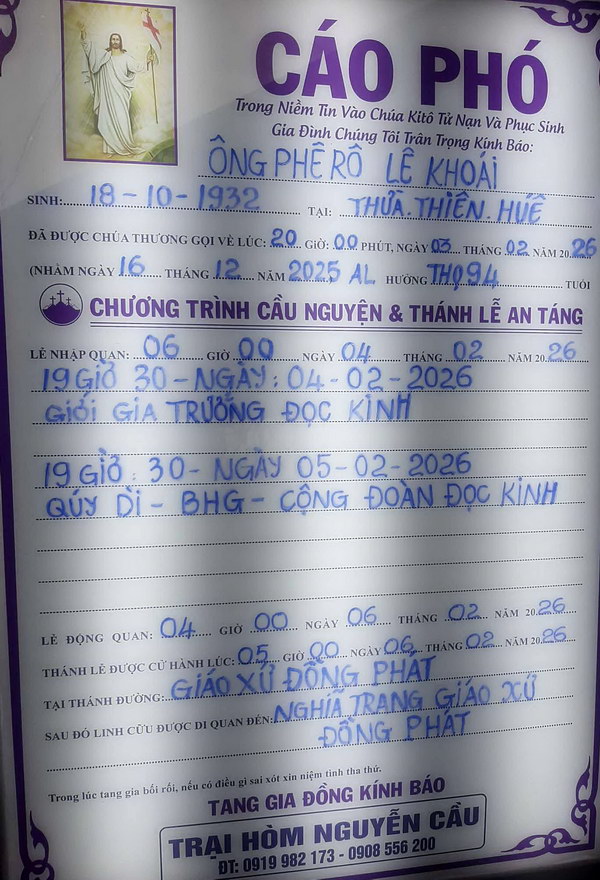 CÁO PHÓ
Trong Niềm Tin Vào Chúa Kitô Tử Nạn Và Phục Sinh
Gia Đình Chúng Tôi Trân Trọng Kính Báo:
ÔNG PHÊ RÔ LÊ KHOÁI
SINH: 18-10-1932 TẠI: THỪA.THIÊN.HUẾ
ĐÃ ĐƯỢC CHÚA THƯƠNG GỌI VỀ LÚC: 20 GIỜ: 00 PHÚT, NGÀY 03 THÁNG 02 NĂM 20.26
(NHẰM NGÀY 16 THÁNG 12 NĂM 2025 AL HƯỞNG THỌ 94 TUỔI
CHƯƠNG TRÌNH CẦU NGUYỆN & THÁNH LỄ AN TÁNG
LỄ NHẬP QUAN: 06 GIỜ 00 NGÀY 04 THÁNG 02 NĂM 20.26
19 GIỜ 30 - NGÀY: 04-02-2026
GIỚI GIA TRƯỞNG ĐỌC KINH
19 GIỜ: 30 - NGÀY 05-02-2026
QÚY DÌ - BHG - CỘNG ĐOÀN ĐỌC KINH
LỄ ĐỘNG QUAN: 04 GIỜ 00 NGÀY 06 THÁNG 02 NĂM 20.26
THÁNH LỄ ĐƯỢC CỬ HÀNH LÚC: 05 GIỜ 00 NGÀY 06 THÁNG 02 NĂM 20.26
TẠI THÁNH ĐƯỜNG: GIÁO XỨ ĐỒNG PHÁT
SAU ĐÓ LINH CỮU ĐƯỢC DI QUAN ĐẾN: NGHĨA TRANG GIÁO XỨ
ĐỒNG PHÁT
Trong lúc tang gia bối rối, nếu có điều gì sai xót xin niệm tình tha thứ.
TANG GIA ĐỒNG KÍNH BÁO
TRẠI HÒM NGUYỄN CẦU
ĐT: 0919 982 173 - 0908 556 200